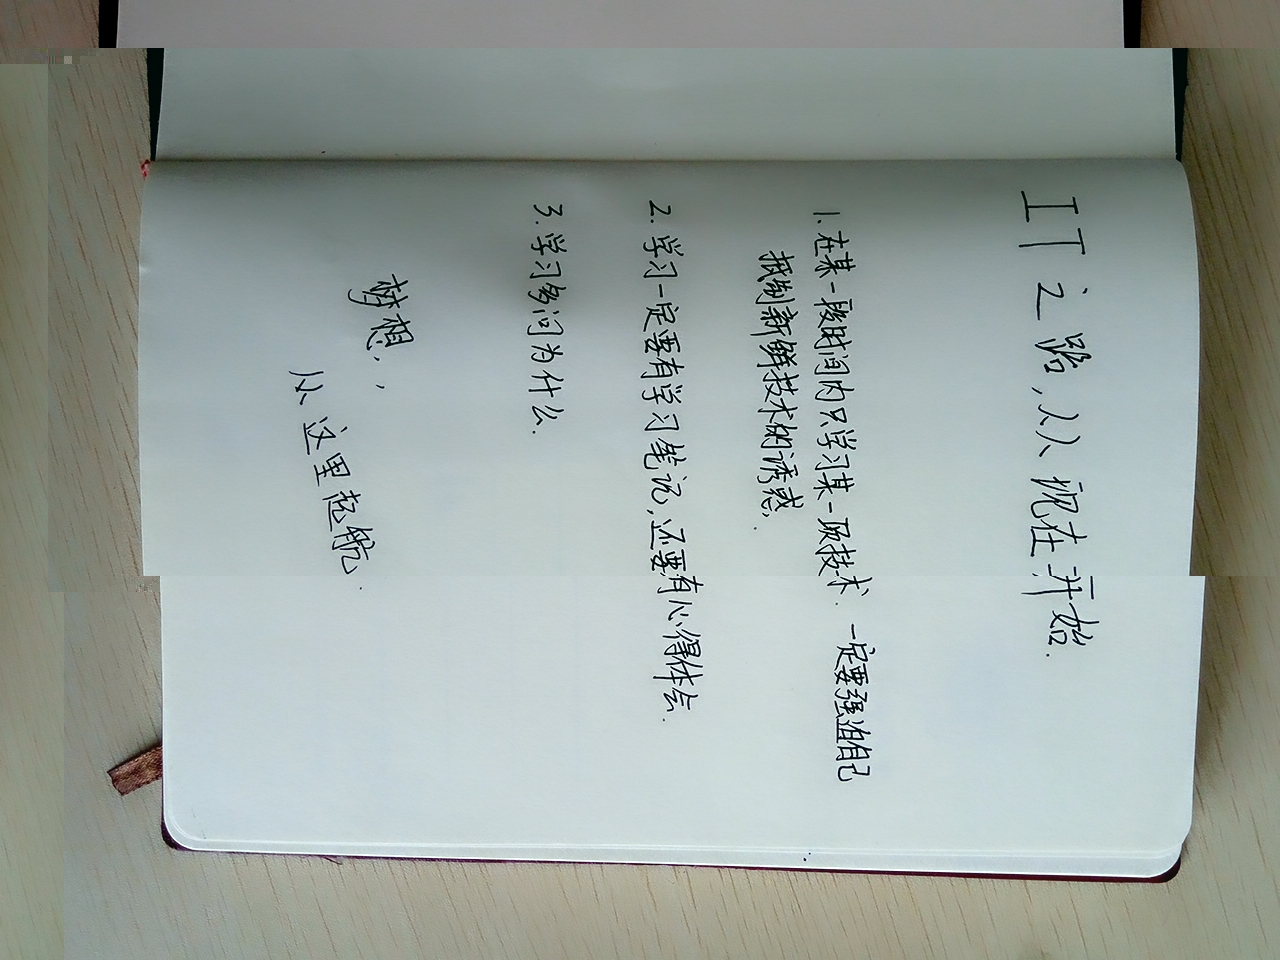 IT之路,从现在开始.
1. 在某一段时间内只学习某一项技术. 一定要强迫自己
抵制新鲜技术的诱惑.
2. 学习一定要有学习笔记,还要有心得体会.
3. 学习多问为什么.
梦想,,
从这里起航.